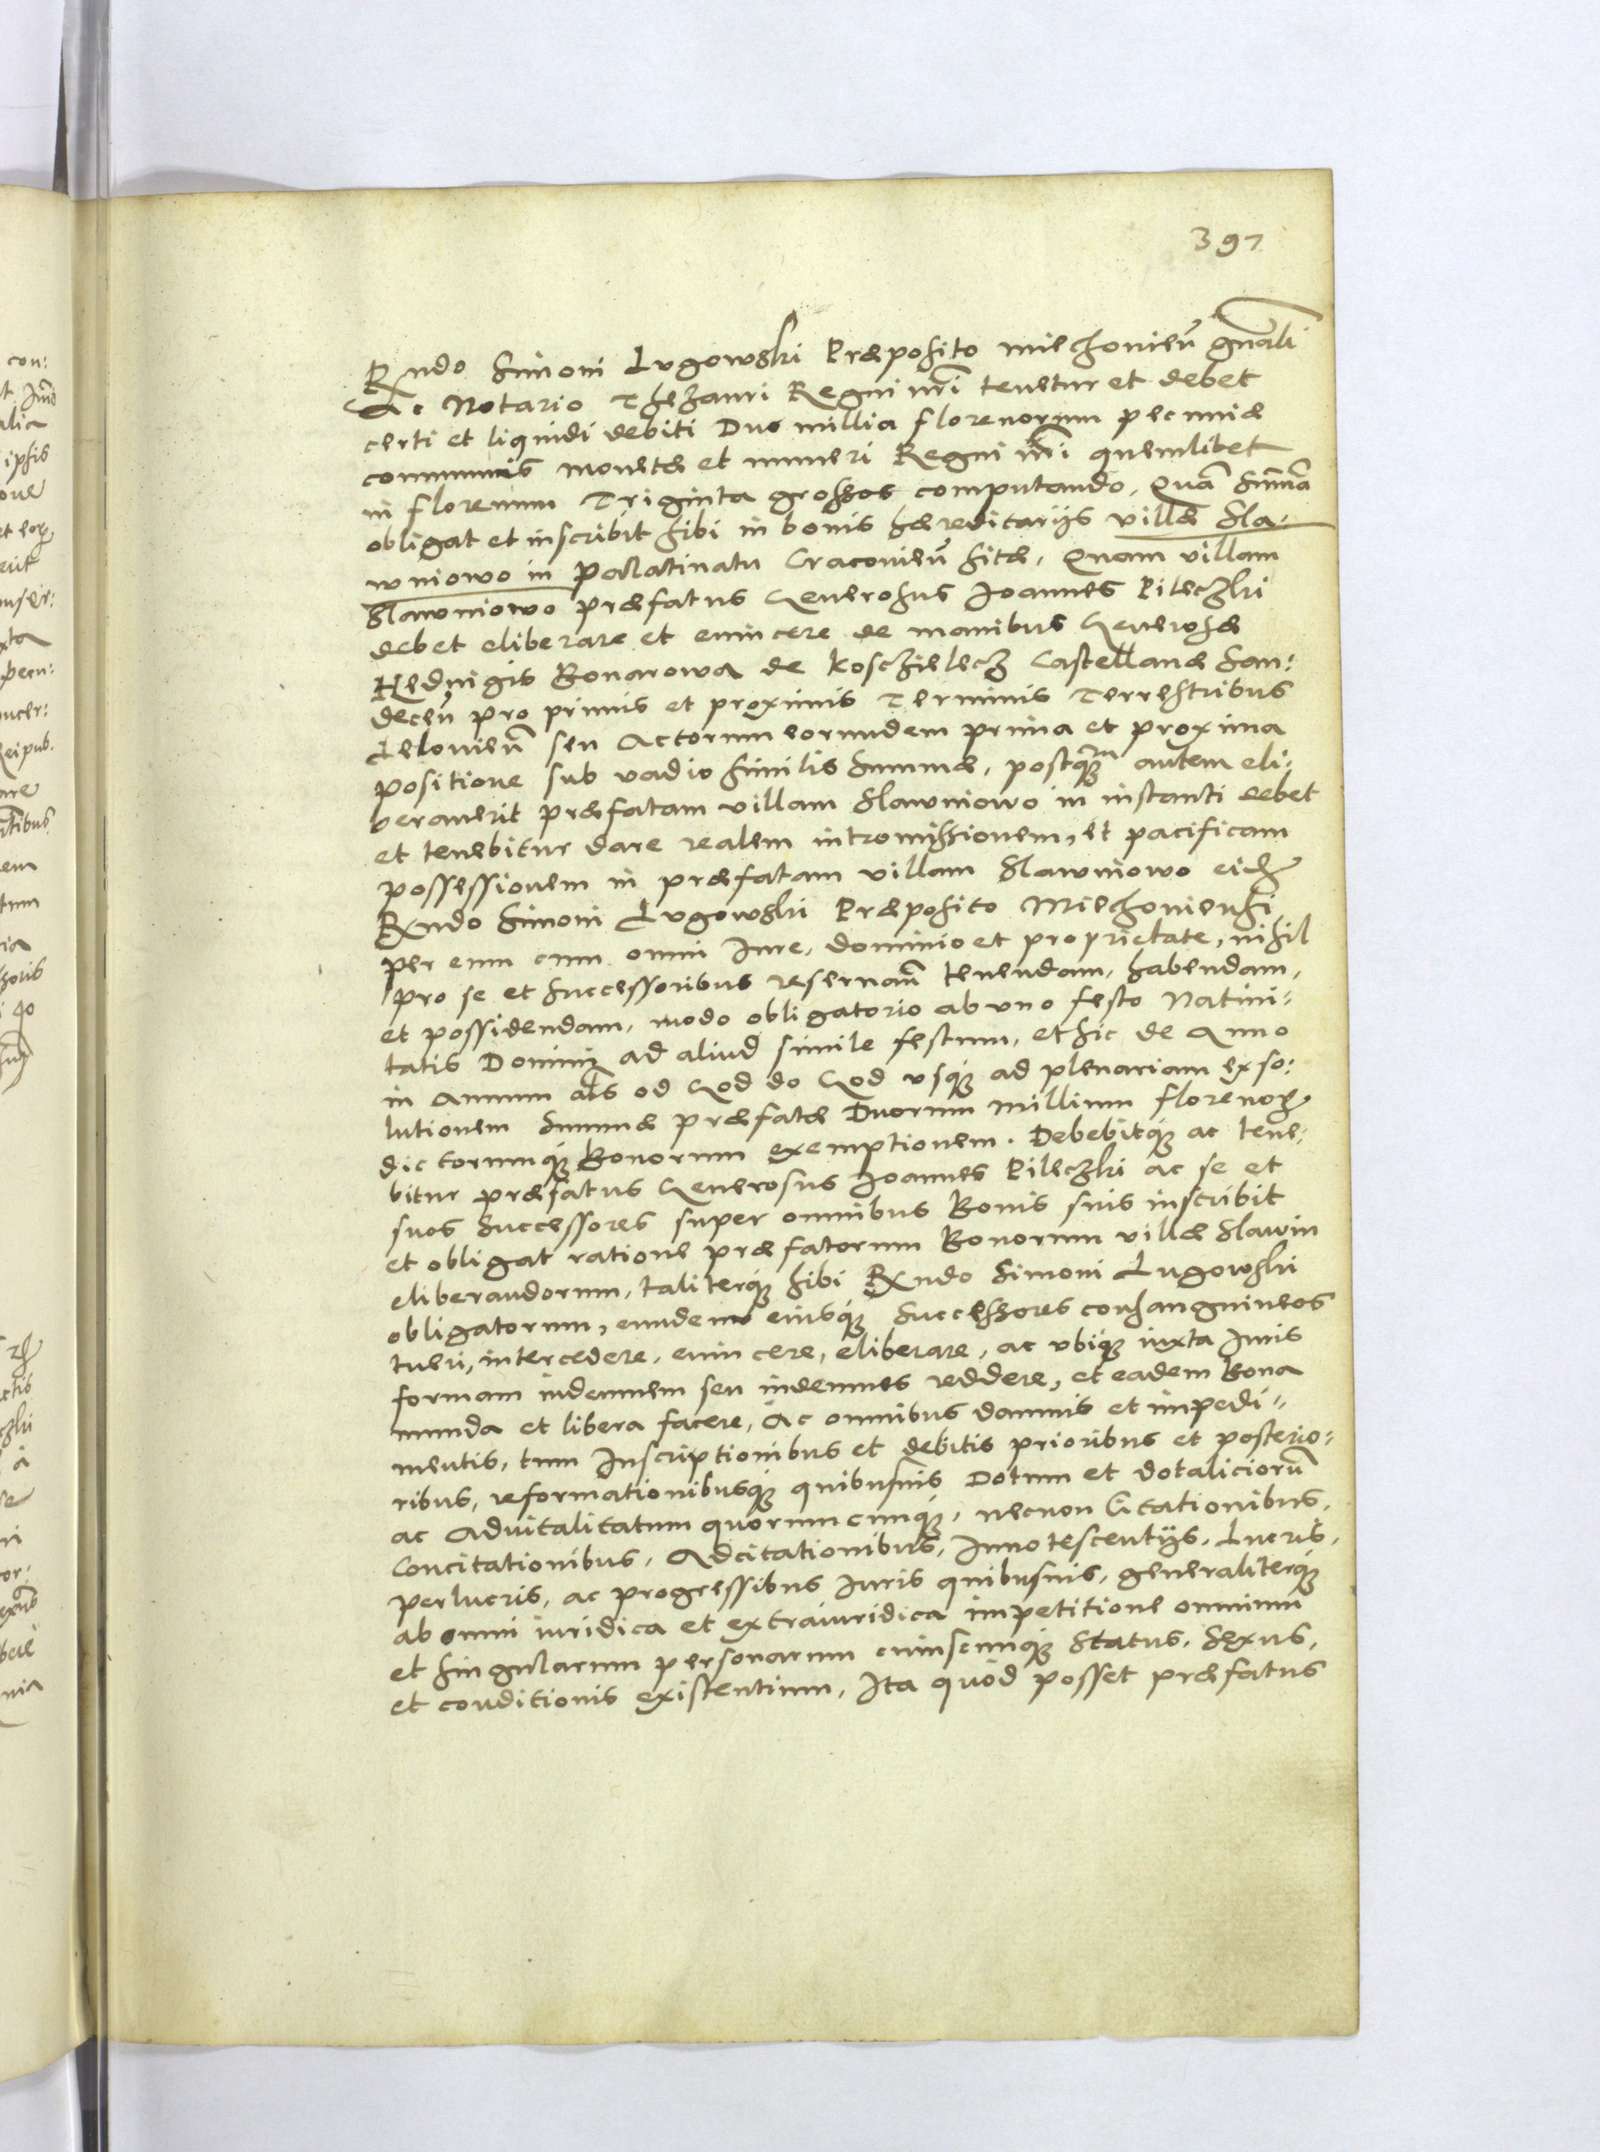 397
Rndo Simoni Lugowski Præposito Miechovieñ gnãli
Ac Notario Thezauri Regni nrĩ tenetur et debet
certi et liquidi debiti Duo millia florenorum pecuniæ
communis monetæ et numeri Regni nrĩ quemlibet
in florenum Triginta grossos computando. Quã Sum̃ã
obligat et inscribit sibi in bonis hæreditarijs villæ Sla-
wniowo in Palatinatu Cracovieñ sitæ. Quam villam
Slawniowo præfatus Generosus Joannes Pileczki
debet eliberare et evincere de manibus Generosæ
Hedvigis Bonarowa de Kosczielecz Castellanæ San:
deceñ pro primis et proximis Terminis Terrestribus
Lelovieñ seu Actorum eorundem prima et proxima
positione sub vadio similis Summæ, postq̃ autem eli:
beraverit præfatam villam Slawniowo in instanti debet
et tenebitur dare realem intromissionem, et pacificam
possessionem in præfatam villam Slawniowo eidẽ
Rndo Simoni Lugowski Præposito Miechoviensi
per eum cum omni Iure, dominio et proprietate, nihil
pro se et successoribus reservañ tenendam, habendam,
et possidendam, modo obligatorio ab uno festo Nativi:
tatis Domini ad aliud simile festum, et sic de Anno
in Annum als od God do God usq́ ad plenariam exso:
lutionem Summæ præfatæ Duorum Millium florenoꝝ
dictorumq́ Bonorum exemptionem. Debebitq́ ac tene:
bitur præfatus Generosus Joannes Pileczki ac se et
suos Successores super omnibus Bonis suis inscribit
et obligat ratione præfatorum Bonorum villæ Slawin
eliberandorum, taliterq́ sibi Rndo Simoni Lugowski
obligatorum, eundem eiusq́ Successores consanguineos
tueri, intercedere, evincere, eliberare, ac ubiq́ iuxta Iuris
formam indemnem seu indemnes reddere, et eadem Bona
munda et libera facere, Ac omnibus damnis et impedi:
mentis, tum Inscriptionibus et debitis prioribus et posterio:
ribus, reformationibusq́ quibusvis Dotum et dotaliciorũ
ac Advitalitatum quorumcunq́, necnon Citationibus,
Concitationibus, Adcitationibus, Innotescentijs, Lucris,
perlucris, ac progressibus Iuris quibusvis, generaliterq́
ab omni iuridica et extraiuridica impetitione omnium
et singularum personarum cuiuscunq́ Status, Sexus,
et conditionis existentium, Ita quòd posset præfatus